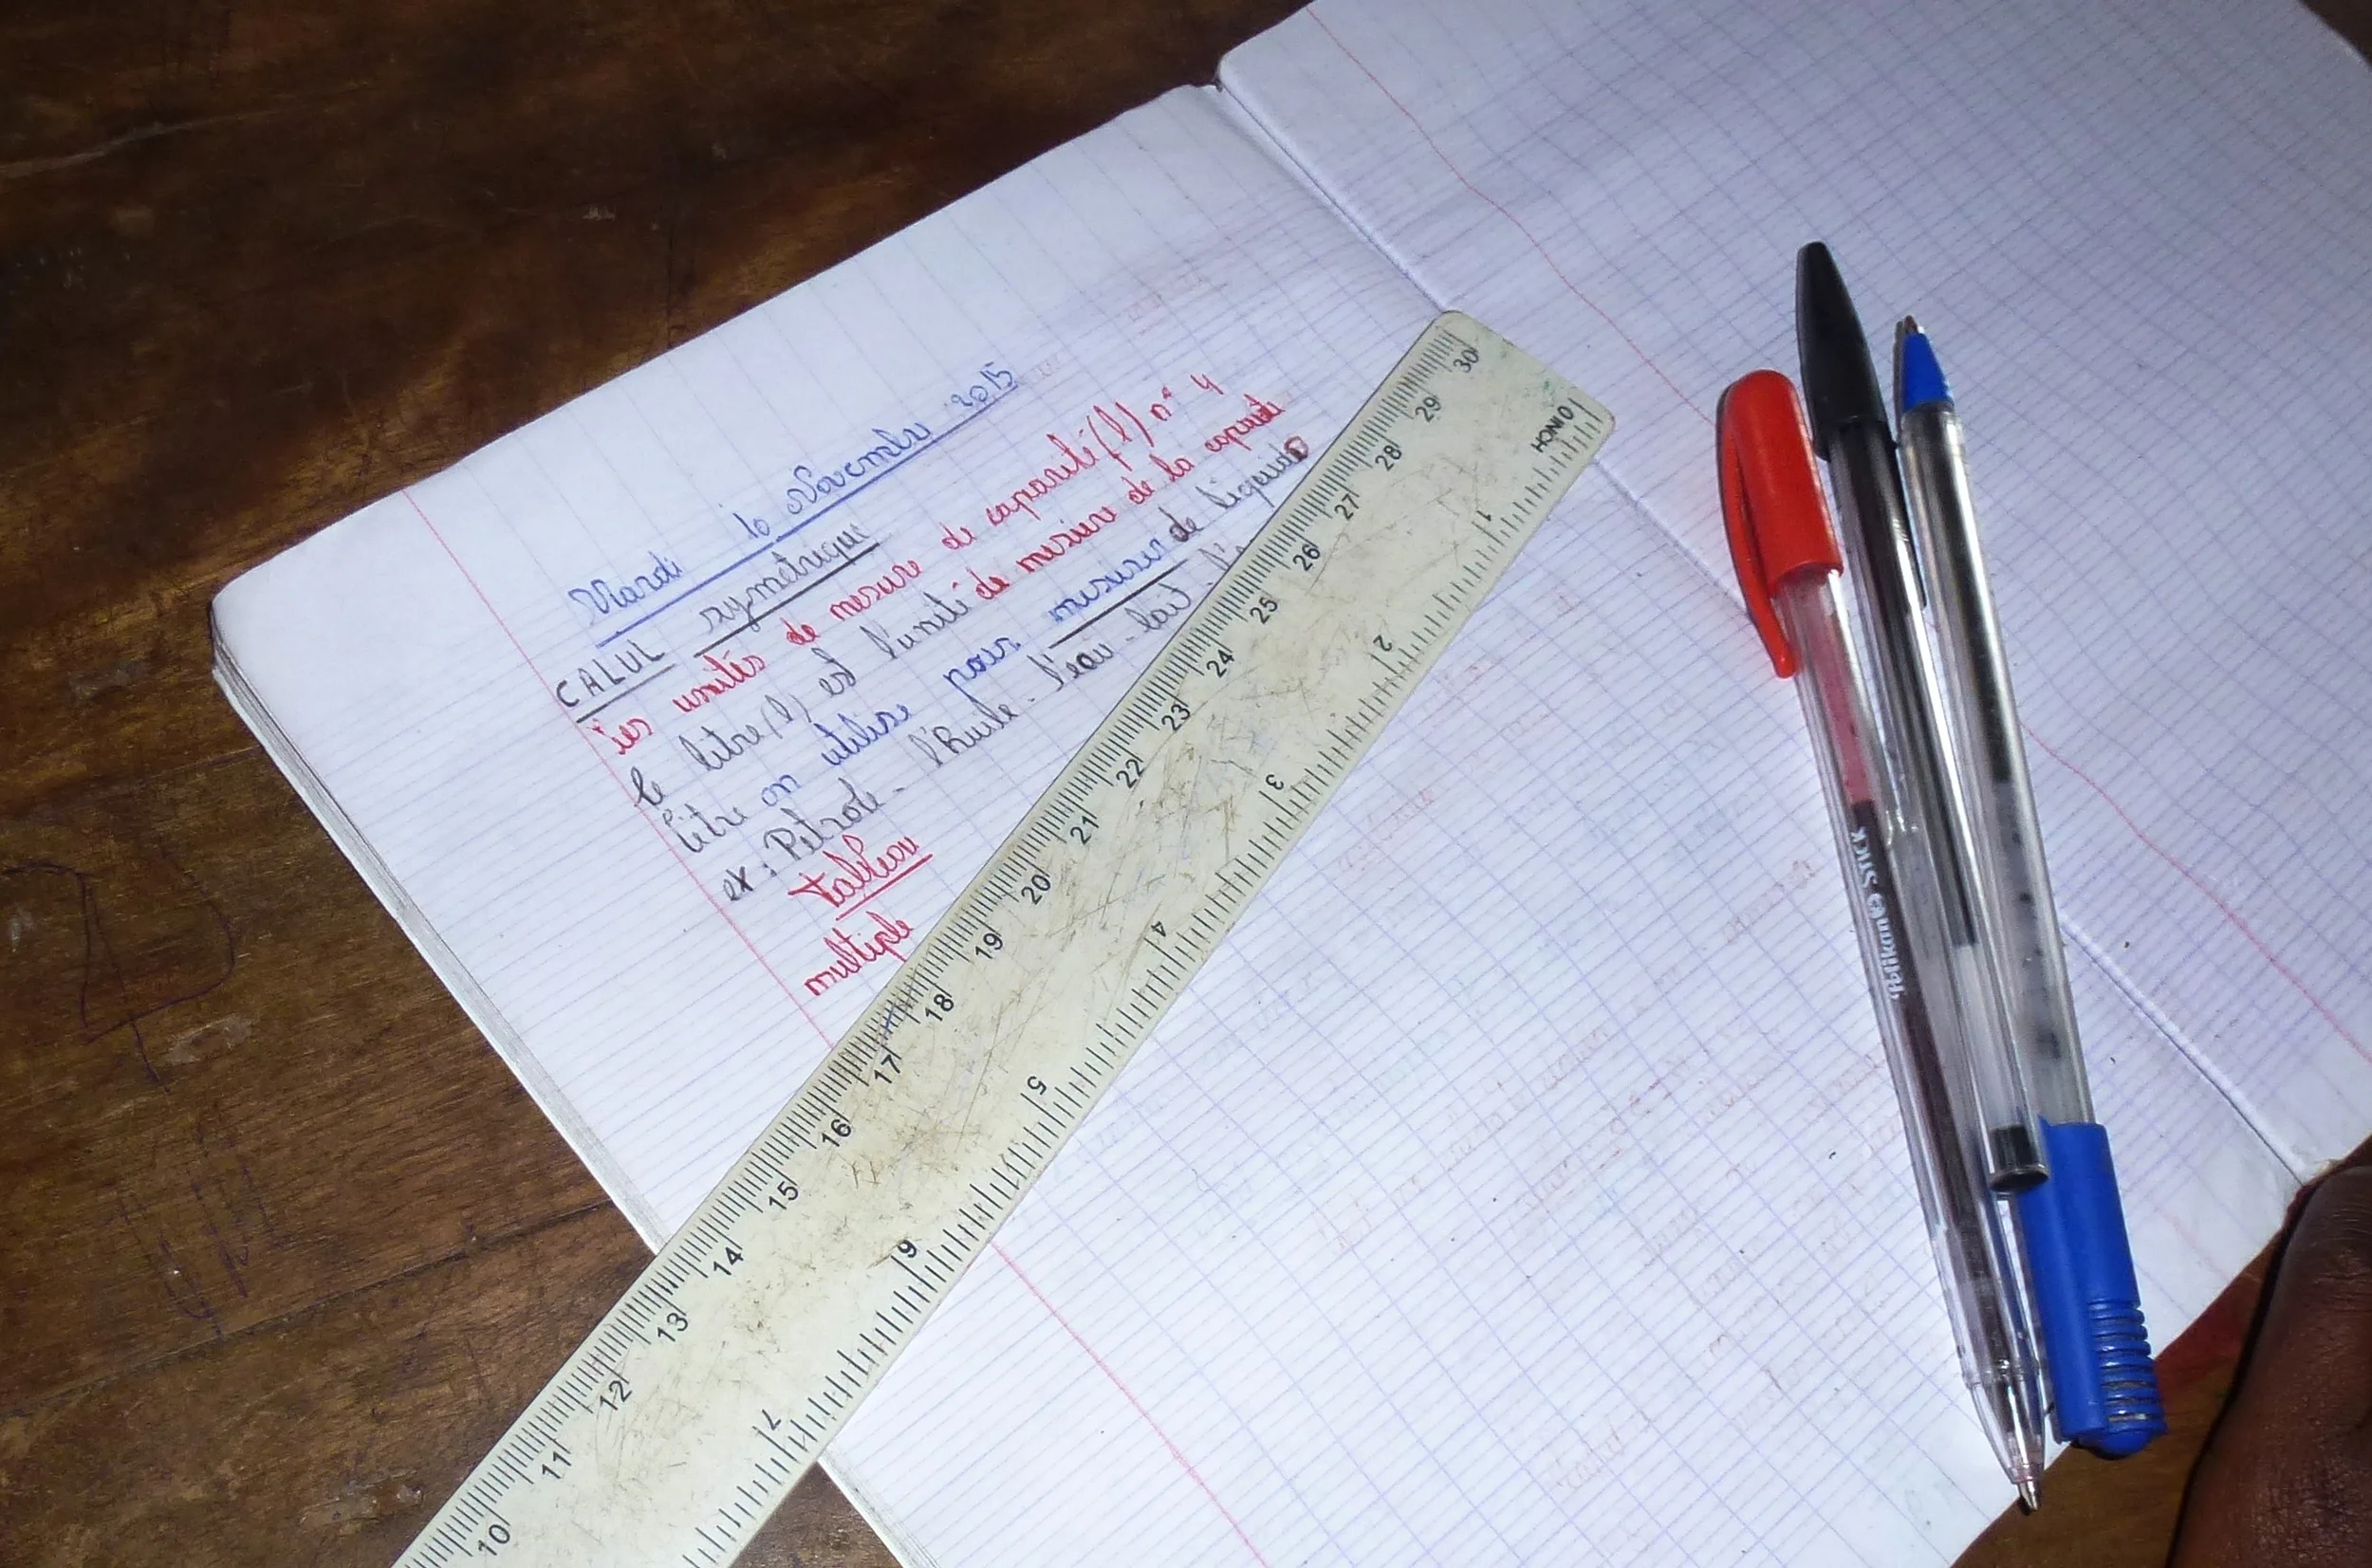 Mardi 10 Novembre 2015
CALUL symétrique
les unités de mesure de caparité (l) n° 4
le litre (l) est l'unité de mesure de la capacité
litre on utilise pour mesurer de liquide
ex: Pétrole - l'huile - l'eau - lait -
tableau
multiple
30
29
28
27
26
25
24
23
22
21
20
19
18
17
16
15
14
13
12
11
10
0 INCH
1
2
3
4
5
6
7
Pelikan STICK